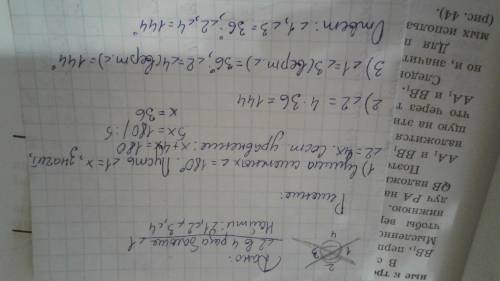 Дано:
∠2 в 4 раза больше ∠1
Найти: ∠1, ∠2, ∠3, ∠4
1
2
3
4
Решение:
1) Сумма смежных = 180°. Пусть ∠1 = x, значит,
∠2 = 4x. Сост. уравнение: x+4x = 180
5x = 180 | :5
x = 36
2) ∠2 = 4 · 36 = 144
3) ∠1 = ∠3 (верт. ∠) = 36°, ∠2 = ∠4 (верт. ∠) = 144°
Ответ: ∠1, ∠3 = 36°, ∠2, ∠4 = 144°
ные к тре
В с
BB₁ перп
Мысленно
чтобы вер
нижнюю.
луч PA на
QB наложи
Поэто
AA₁ и BB₁
наложится
щую эту
что через т
AA₁ и BB₁
Следо
и, значит
Для п
мых использ
(рис. 44).